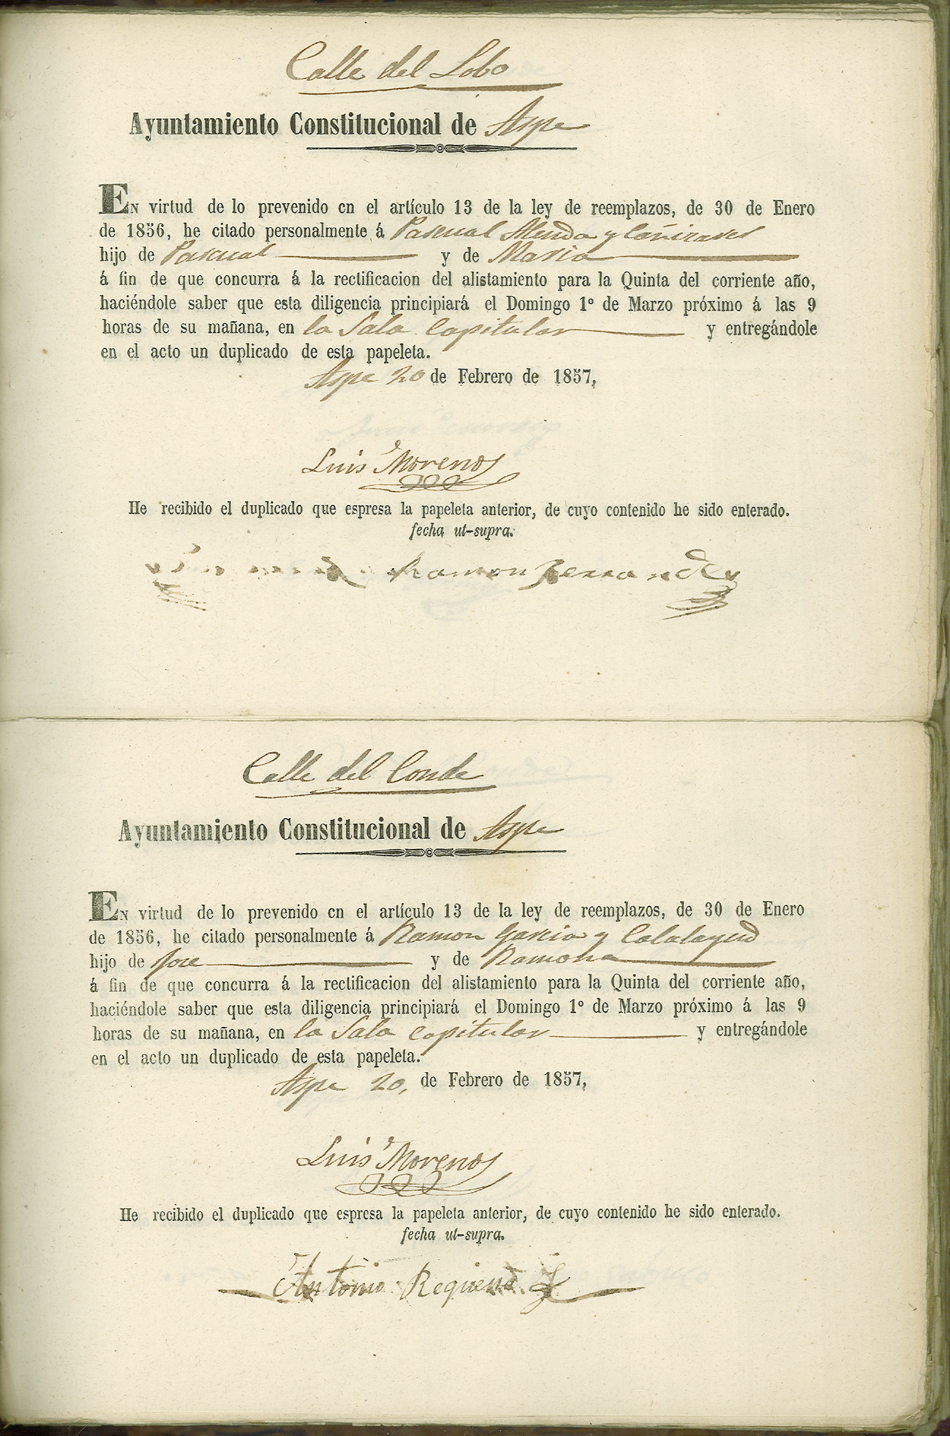 Calle del Lobo
Ayuntamiento Constitucional de Aspe
EN virtud de lo prevenido en el artículo 13 de la ley de reemplazos, de 30 de Enero
de 1856, he citado personalmente á Pascual Almodo y Cañizares
hijo de Pascual y de Maria
á fin de que concurra á la rectificacion del alistamiento para la Quinta del corriente año,
haciéndole saber que esta diligencia principiará el Domingo 1º de Marzo próximo á las 9
horas de su mañana, en la Sala Capitular y entregándole
en el acto un duplicado de esta papeleta.
Aspe 20 de Febrero de 1857,
Luis Moreno
He recibido el duplicado que espresa la papeleta anterior, de cuyo contenido he sido enterado.
fecha ut-supra.
Ramon Ferrandez
Calle del Conde
Ayuntamiento Constitucional de Aspe
EN virtud de lo prevenido en el artículo 13 de la ley de reemplazos, de 30 de Enero
de 1856, he citado personalmente á Ramon Garcia y Calatayud
hijo de Jose y de Ramona
á fin de que concurra á la rectificacion del alistamiento para la Quinta del corriente año,
haciéndole saber que esta diligencia principiará el Domingo 1º de Marzo próximo á las 9
horas de su mañana, en la Sala Capitular y entregándole
en el acto un duplicado de esta papeleta.
Aspe 20, de Febrero de 1857,
Luis Moreno
He recibido el duplicado que espresa la papeleta anterior, de cuyo contenido he sido enterado.
fecha ut-supra.
Antonio Requena